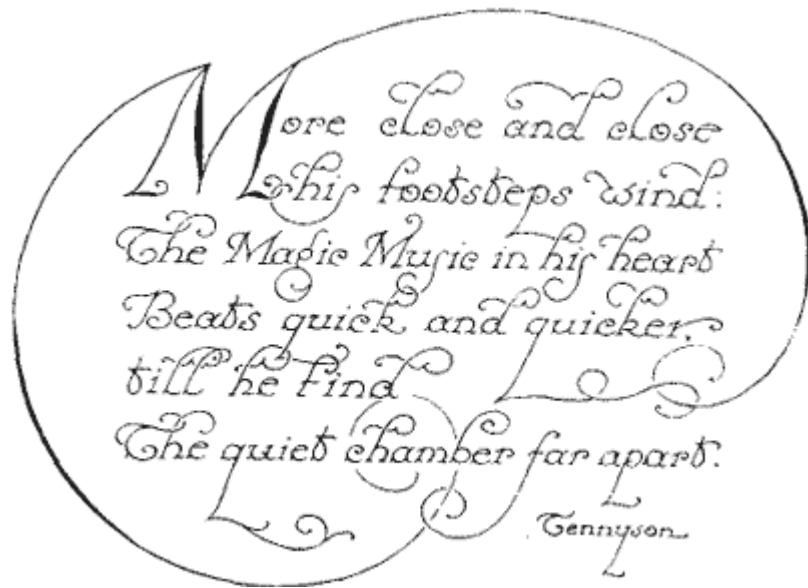 More close and close
his footsteps wind:
The Magic Music in his heart
Beats quick and quicker,
till he find
The quiet chamber far apart.
Tennyson